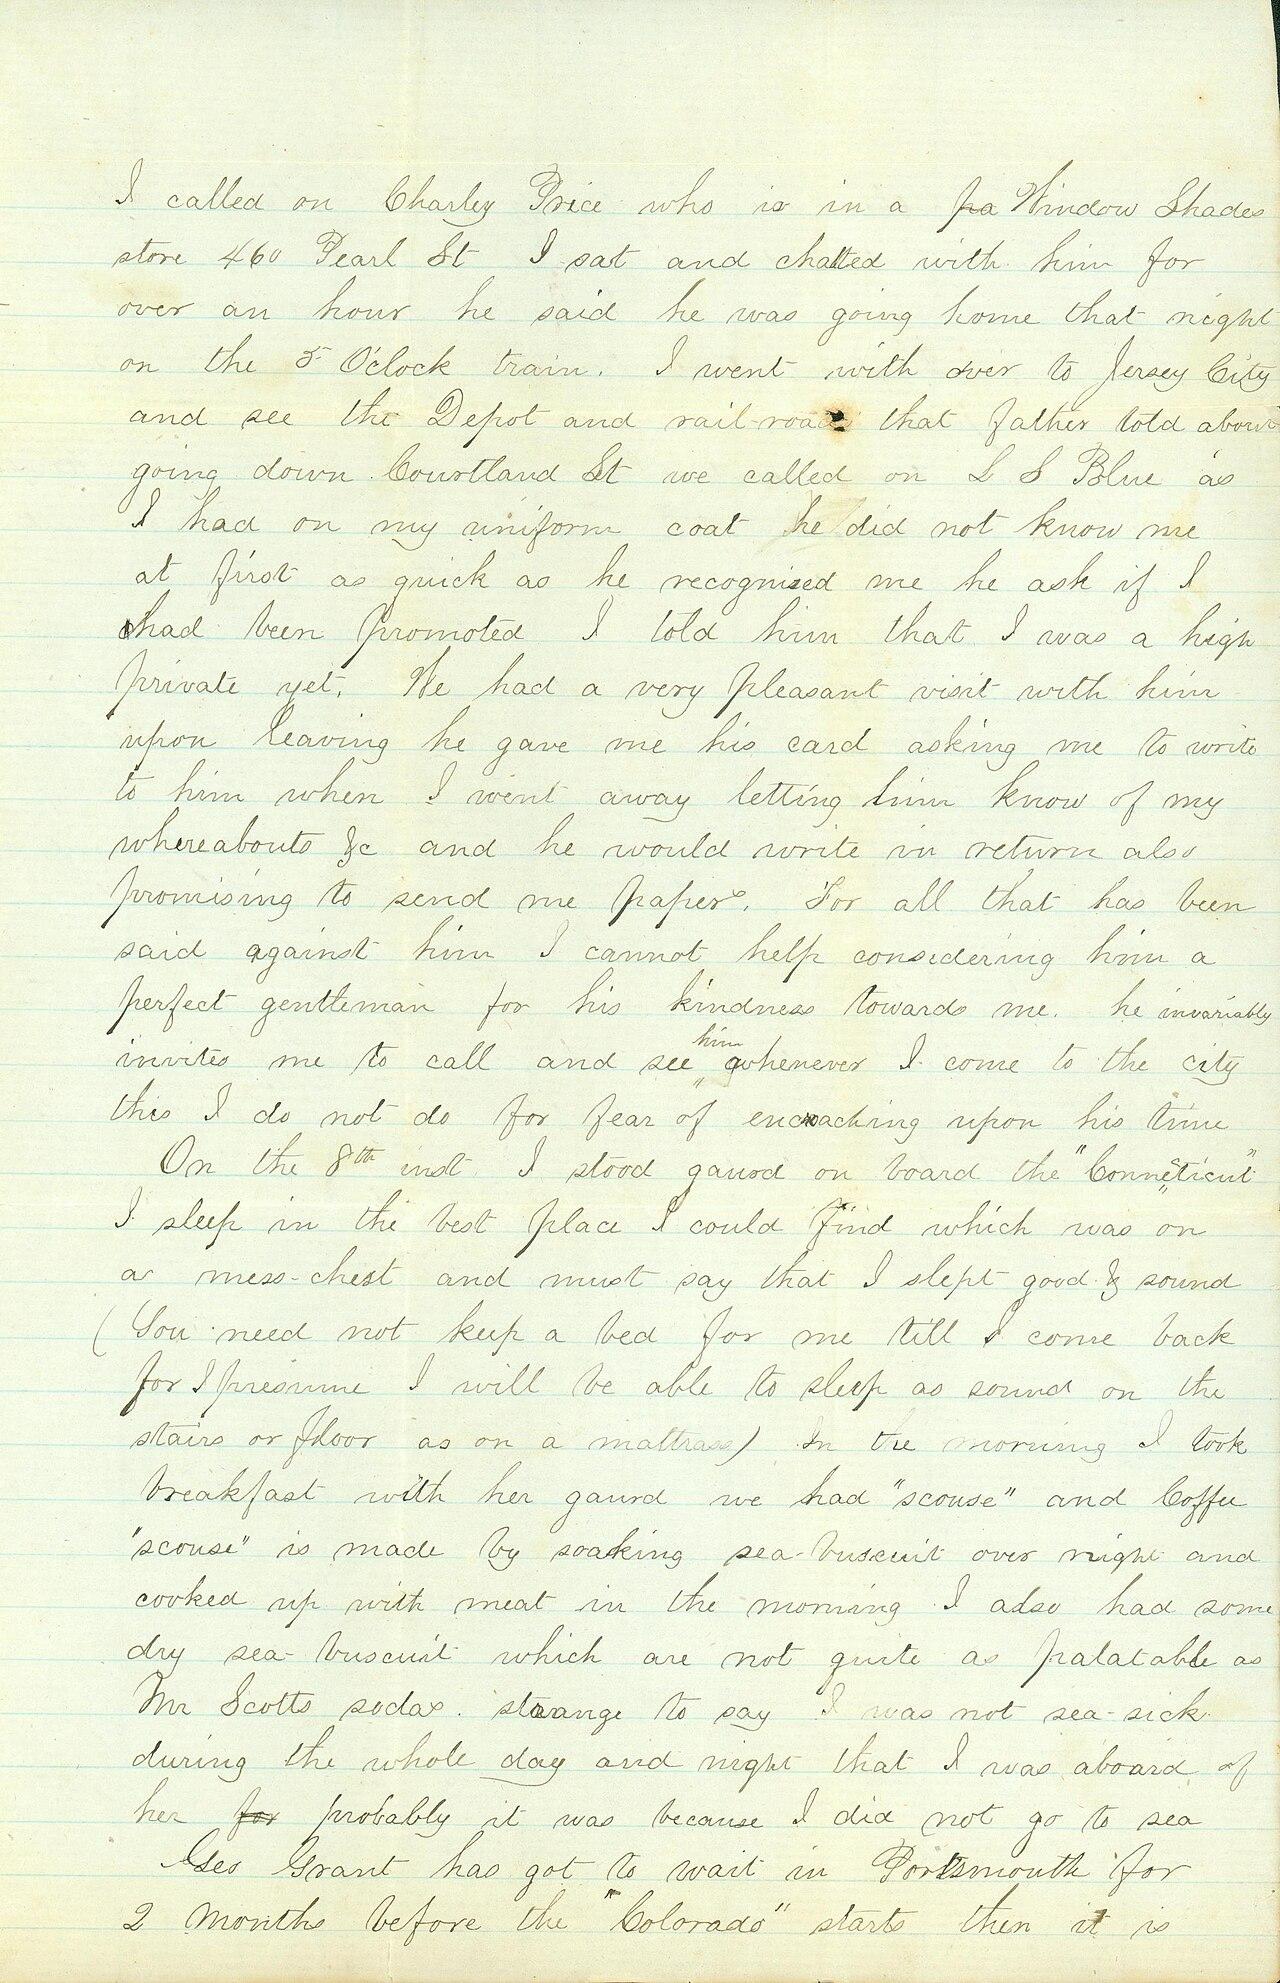 I called on Charley Price who is in a pa Window Shades
store 460 Pearl St I sat and chatted with him for
over an hour he said he was going home that night
on the 5 O'clock train. I went with over to Jersey City
and see the Depot and rail-roads that father told about
going down Courtland St we called on L S Blue as
I had on my uniform coat he did not know me
at first as quick as he recognized me he ask if I
had been promoted I told him that I was a high
private yet. We had a very pleasant visit with him
upon leaving he gave me his card asking me to write
to him when I went away letting him know of my
whereabouts &c and he would write in return also
promising to send me papers. For all that has been
said against him I cannot help considering him a
perfect gentleman for his kindness towards me. he invariably
invites me to call and see him whenever I come to the city
this I do not do for fear of encroaching upon his time
On the 8th inst I stood gaurd on board the "Conneticut"
I sleep in the best place I could find which was on
a mess-chest and must say that I slept good & sound
(You need not keep a bed for me till I come back
for I presume I will be able to sleep as sound on the
stairs or floor as on a mattrass) In the morning I took
breakfast with her gaurd we had "scouse" and Coffee
"scouse" is made by soaking sea-buscuit over night and
cooked up with meat in the morning I also had some
dry sea-buscuit which are not quite as palatable as
Mr Scotts sodas. strange to say I was not sea-sick
during the whole day and night that I was aboard of
her for probably it was because I did not go to sea
Geo Grant has got to wait in Portsmouth for
2 months before the "Colorado" starts then it is